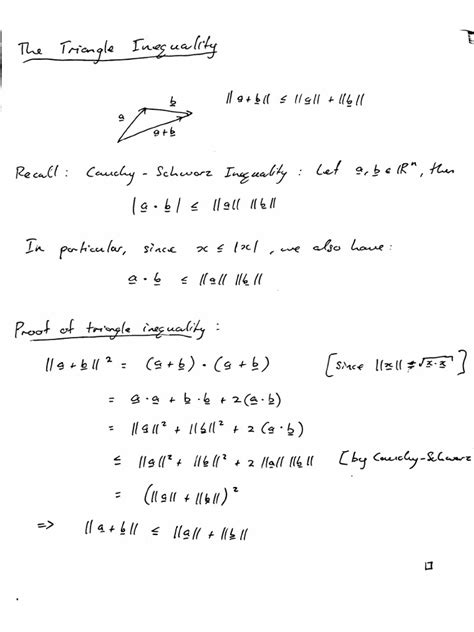 The Triangle Inequality
b
a
a+b
||a+b|| ≤ ||a|| + ||b||
Recall: Cauchy-Schwarz Inequality: Let a, b ∈ ℝⁿ, then
|a · b| ≤ ||a|| ||b||
In particular, since x ≤ |x|, we also have:
a · b ≤ ||a|| ||b||
Proof of triangle inequality:
||a+b||² = (a+b) · (a+b) [since ||x|| = √x·x]
= a · a + b · b + 2(a · b)
= ||a||² + ||b||² + 2(a · b)
≤ ||a||² + ||b||² + 2||a|| ||b|| [by Cauchy-Schwarz
= (||a|| + ||b||)²
=> ||a+b|| ≤ ||a|| + ||b||
□